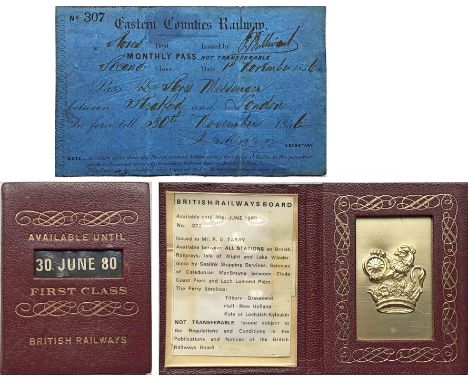 No 307
Eastern Counties Railway.
Stores Dept Issued by
MONTHLY PASS, NOT TRANSFERABLE
Second Class Date November 1846
Pass Stores Messenger
between Stratford and London
In force till 30th November 1846
SECRETARY
NOTE
AVAILABLE UNTIL
30 JUNE 80
FIRST CLASS
BRITISH RAILWAYS
BRITISH RAILWAYS BOARD
Available until 30th JUNE 1980
No. 072
Issued to Mr. R. G. TARRY
Available between ALL STATIONS on British
Railways, Isle of Wight and Lake Winder-
mere by Sealink Shipping Services, Services
of Caledonian MacBrayne between Clyde
Coast Piers and Loch Lomond Piers.
The Ferry Services:
Tilbury - Gravesend
Hull - New Holland
Kyle of Lochalsh - Kyleakin
NOT TRANSFERABLE Issued subject to
the Regulations and Conditions in the
Publications and Notices of the British
Railways Board.